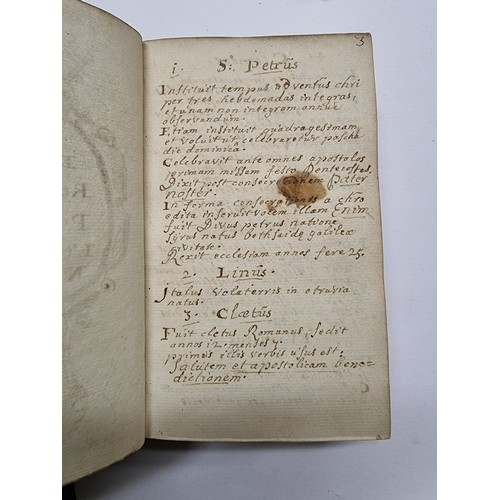 3
i. S: Petrus
Instituit tempus adventus chri
per tres hebdomadas integras,
et unam non integram annue
observandum.
Etiam instituit quadragesimam
et voluit ut celebraretur pascha
die dominica.
Celebravit ante omnes apostolos
primam missam festo Pentecostes.
Dixit post consecrationem Pater
noster.
In forma consecrationis a chro
odita inseruit vocem illam Enim
fuit Divus petrus natione
syrus natus bethsaide galileæ
civitate.
Rexit ecclesiam annos fere 25.
2. Linus.
Italus Volaterris in etruria
natus.
3. Clætus
Fuit cletus Romanus, sedit
annos 12. menses 7.
primus illis verbis usus est:
Salutem et apostolicam bene-
dictionem.